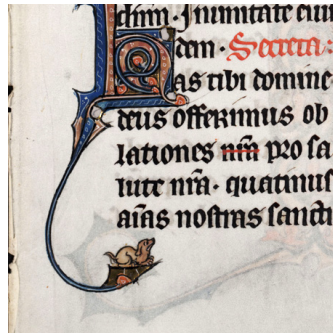 dum · In unitate eiu
dem · Secreta :
Has tibi domine
deus offerimus ob
lationes nr̄a pro sa
lute nr̄a · quatinus
aīas nostras sancti